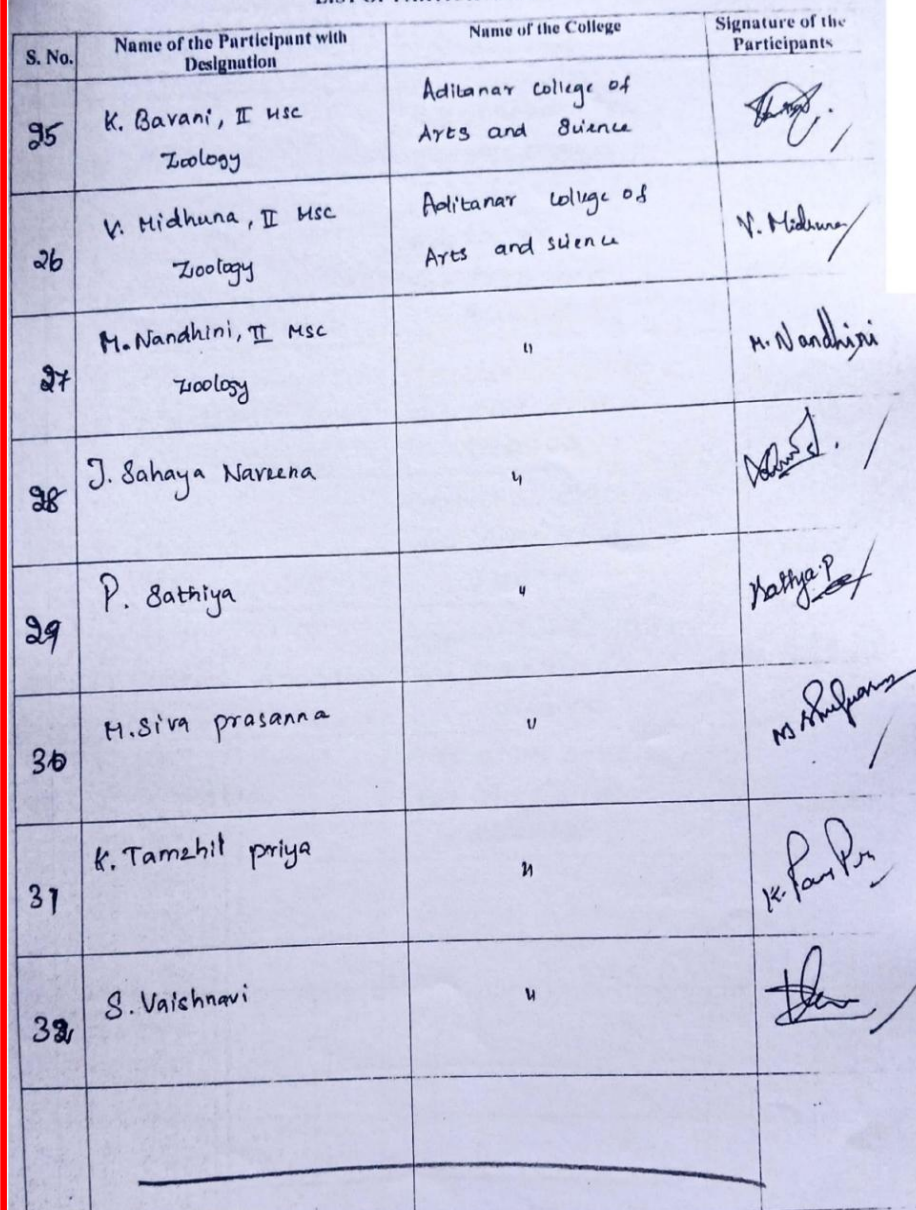 S. No.
Name of the Participant with
Designation
Name of the College
Signature of the
Participants
25
K. Bavani, II Msc
Zoology
Aditanar college of
Arts and Science
26
V. Midhuna, II Msc
Zoology
Aditanar college of
Arts and science
V. Midhuna
27
M. Nandhini, II Msc
Zoology
"
M. Nandhini
28
J. Sahaya Naveena
"
29
P. Sathiya
"
Sathya.P
30
M. Siva prasanna
"
31
K. Tamzhil priya
"
32
S. Vaishnavi
"